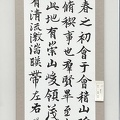 春之初會于會稽山
脩稧事也羣賢畢至
此地有崇山峻領茂
有清流激湍暎帶左右